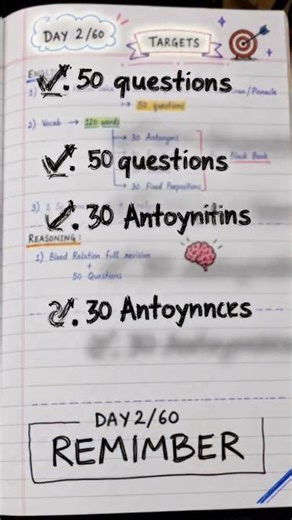 DAY 2/60
TARGETS
50 questions
50 questions
2) Vocab → 120 words
50 questions
→ 30 Antonyms
Black Book
→ 30 Fixed Prepositions
3) 1
30 Antoynitins
REASONING:
1) Blood Relation full revision
+
50 Questions
30 Antoynnces
DAY 2/60
REMIMBER